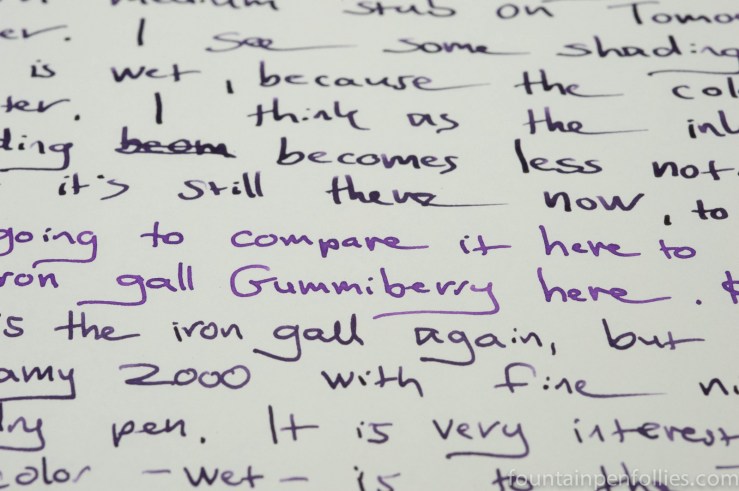 medium stub on Tomo
er. I see some shading
is wet, because the col
ter. I think as the ink
ding becomes less not
it's still there now, to
going to compare it here to
ron gall Gummiberry here.
is the iron gall again, but
amy 2000 with fine n
dry pen. It is very interest
color - wet - is to the
fountainpenfollies.com